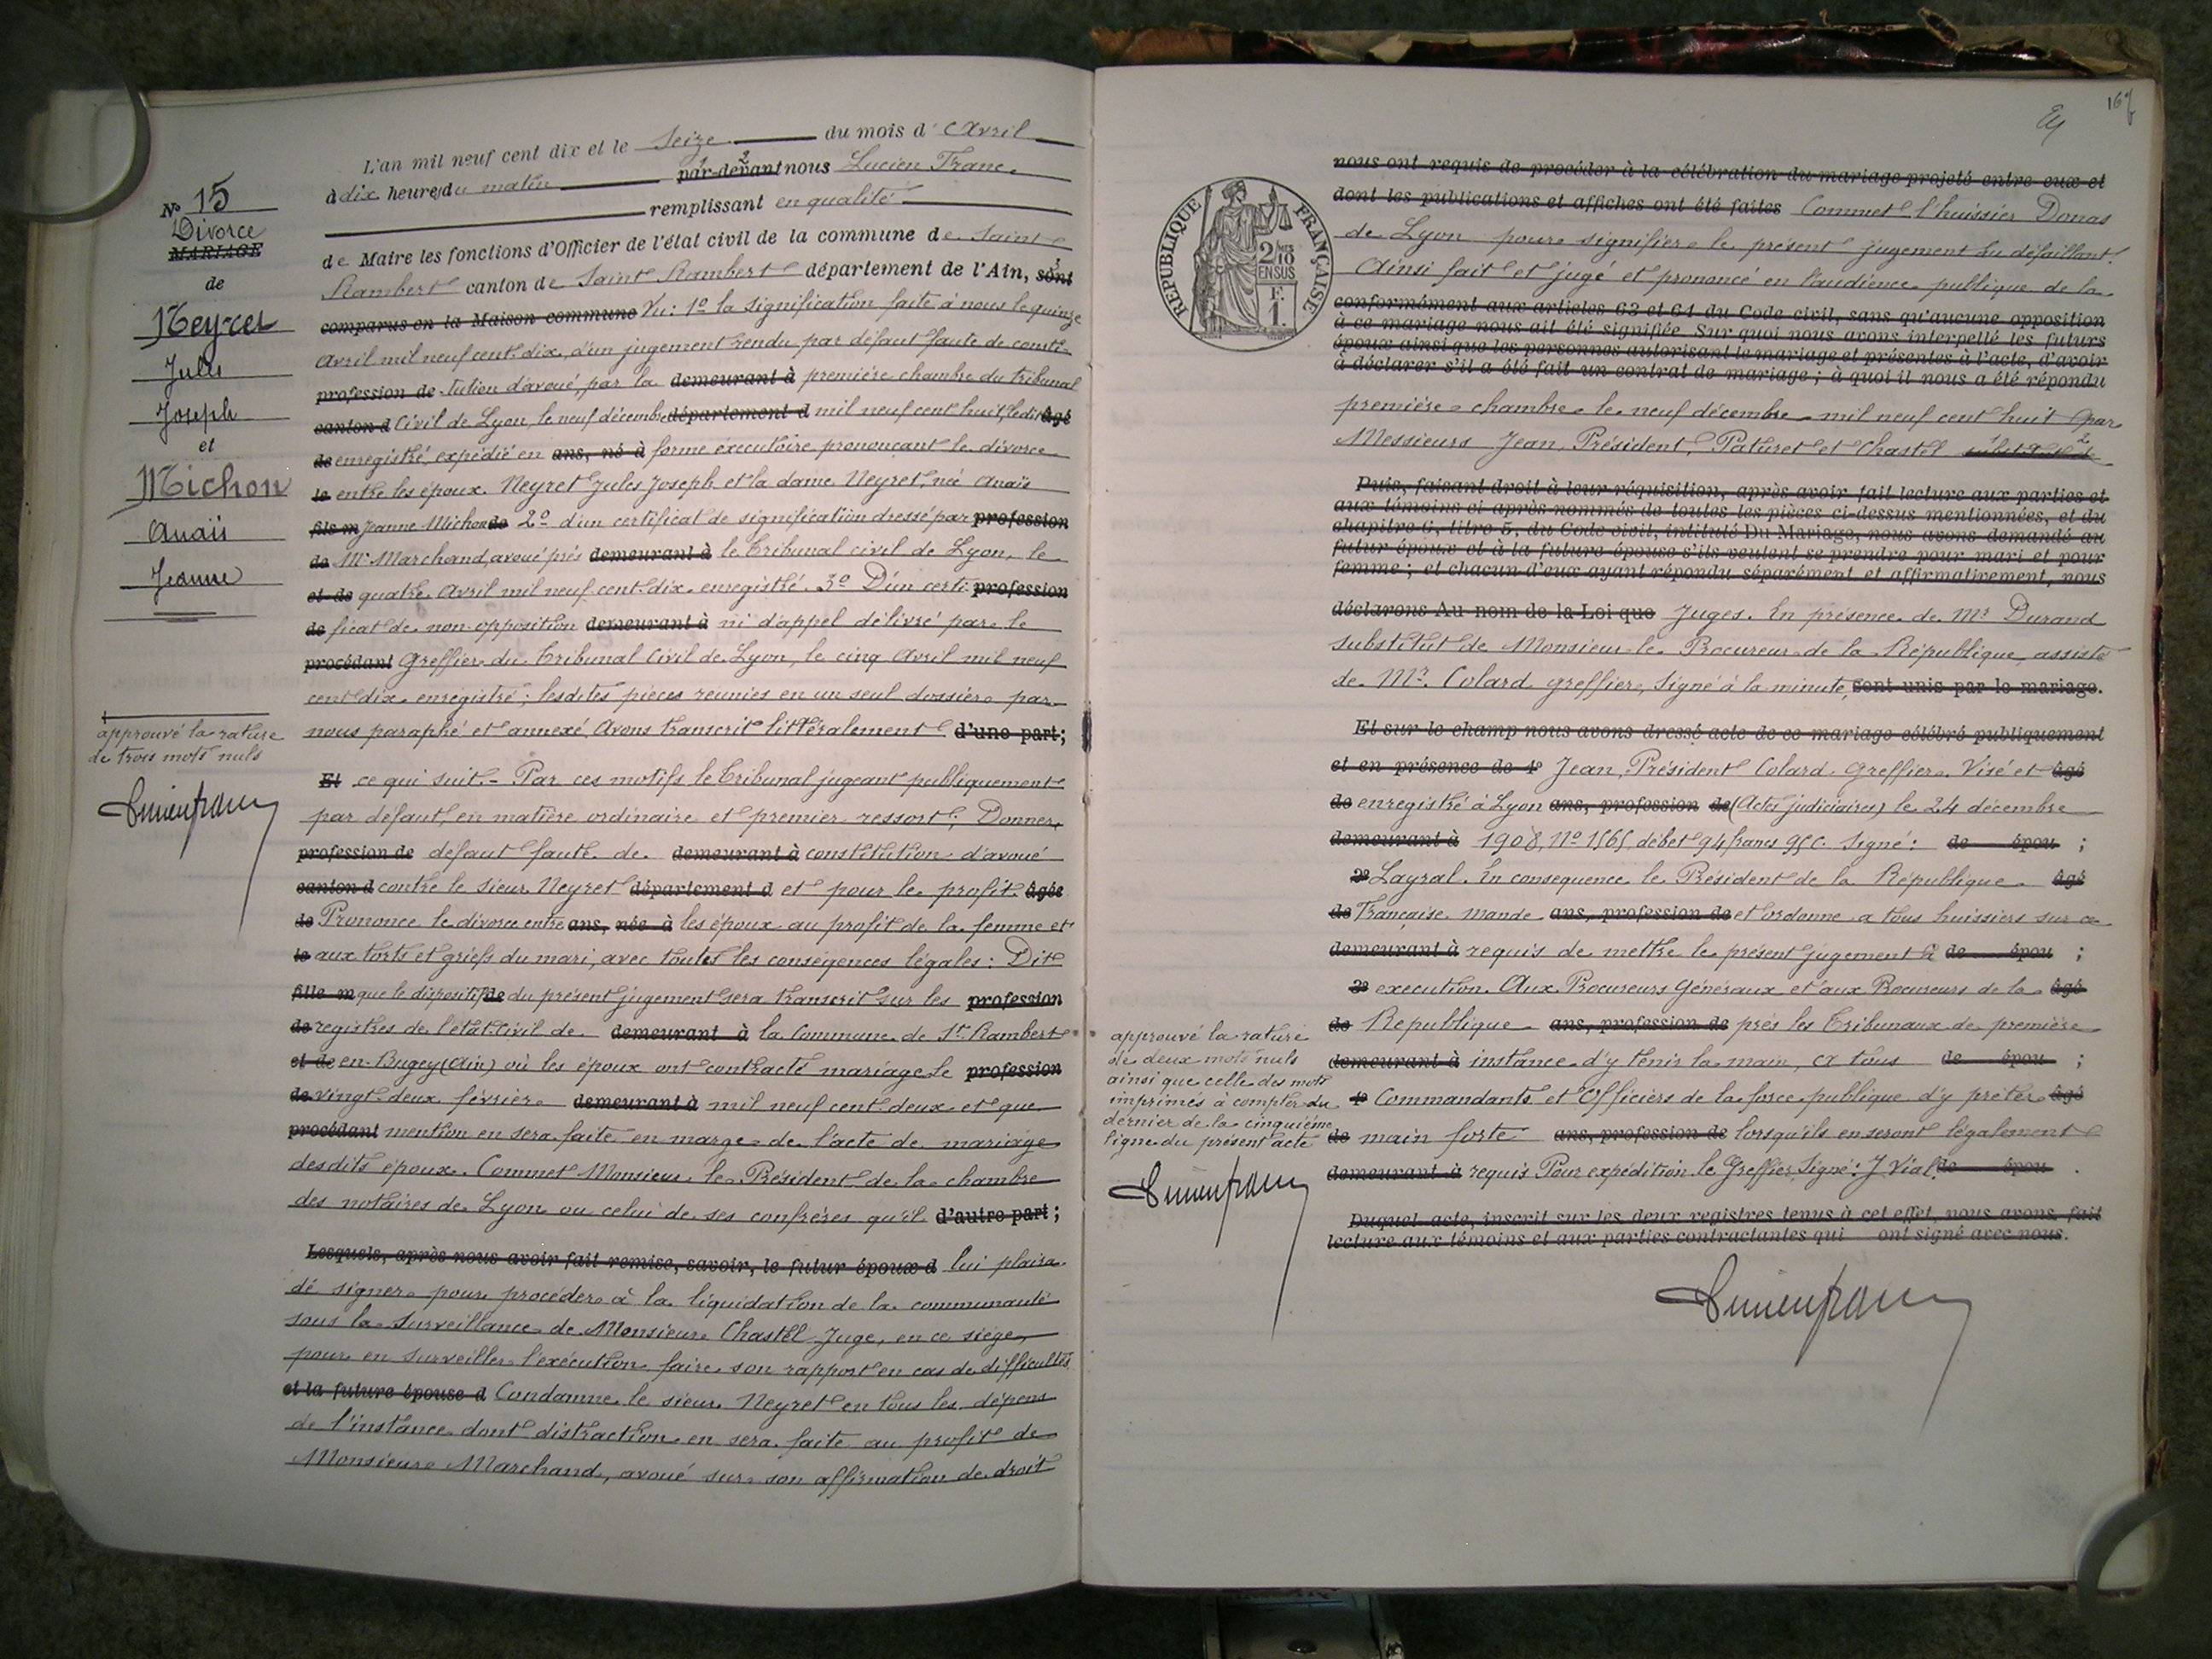 N° 15
Divorce
MARIAGE
de
Neyret
Jules
Joseph
et
Michon
Anaïs
Jeanne
approuvé la rature
de trois mots nuls
L'an mil neuf cent dix et le Seize du mois d'Avril
à dix heures du matin par-devant nous Lucien Franc.
remplissant en qualité
de Maire les fonctions d'Officier de l'état civil de la commune de Saint
Rambert canton de Saint Rambert département de l'Ain, sont
comparus en la Maison commune Vu: 1° la signification faite à nous le quinze
Avril mil neuf cent dix, d'un jugement rendu par défaut faute de consti-
profession de tution d'avoué, par la demeurant à première chambre du tribunal
canton d Civil de Lyon, le neuf décembre département d mil neuf cent huit, ledit âgé
de enregistré, expédié en ans, né à forme éxécutoire prononçant le divorce
le entre les époux Neyret Jules Joseph et la dame Neyret, née Anaïs
fils m Jeanne Michon de 2° d'un certificat de signification dressé par profession
de Mr Marchand, avoué près demeurant à le Tribunal civil de Lyon, le
et de quatre Avril mil neuf cent dix enregistré. 3° D'un certi- profession
de ficat de non-opposition demeurant à ni d'appel délivré par le
procédant Greffier du Tribunal Civil de Lyon, le cinq Avril mil neuf
cent dix enregistré; lesdites pièces réunies en un seul dossier par
nous paraphé et annexé Avons transcrit littéralement d'une part;
Et ce qui suit. - Par ces motifs le Tribunal jugeant publiquement
par défaut, en matière ordinaire et premier ressort; Donner
profession de défaut faute de demeurant à constitution d'avoué
canton d contre le sieur Neyret département d et pour le profit âgée
de Prononce le divorce entre ans, née à les époux au profit de la femme et
le aux torts et griefs du mari, avec toutes les conséqences légales: Dit
fille m que le dispositif de du présent jugement sera transcrit sur les profession
de registres de l'état-civil de demeurant à la Commune de St Rambert
et de en-Bugey (Ain) où les époux ont contracté mariage le profession
de vingt-deux février demeurant à mil neuf cent deux et que
procédant mention en sera faite en marge de l'acte de mariage
desdits époux. Commet Monsieur le Président de la chambre
des notaires de Lyon ou celui de ses confrères qu'il d'autre part;
Lesquels, après nous avoir fait remise, savoir, le futur époux d lui plaira
dé signer pour procéder à la liquidation de la communauté
sous la Surveillance de Monsieur Chastel Juge, en ce siège,
pour en surveiller l'exécution faire son rapport en cas de difficultés
et la future épouse d Condamne le sieur Neyret en tous les dépens
de l'instance dont distraction en sera faite au profit de
Monsieur Marchand, avoué sur son affirmation de droit
REPUBLIQUE FRANÇAISE
2/10
EN SUS
F.
1.
nous ont requis de procéder à la célébration du mariage projeté entre eux et
dont les publications et affiches ont été faites Commet l'huissier Donas
de Lyon pour signifier le présent jugement au défaillant.
Ainsi fait et jugé et prononcé en l'audience publique de la
conformément aux articles 63 et 64 du Code civil, sans qu'aucune opposition
à ce mariage nous ait été signifiée Sur quoi nous avons interpellé les futurs
époux ainsi que les personnes autorisant le mariage et présentes à l'acte, d'avoir
à déclarer s'il a été fait un contrat de mariage; à quoi il nous a été répondu
première chambre le neuf décembre mil neuf cent huit par
Messieurs Jean, Président, Paturet et Chastel
Puis, faisant droit à leur réquisition, après avoir fait lecture aux parties et
aux témoins ci-après nommés de toutes les pièces ci-dessus mentionnées, et du
chapitre 6, titre 5, du Code civil, intitulé Du Mariage, nous avons demandé au
futur époux et à la future épouse s'ils veulent se prendre pour mari et pour
femme; et chacun d'eux ayant répondu séparément et affirmativement, nous
déclarons Au nom de la Loi que Juges. En présence de Mr Durand
substitut de Monsieur le Procureur de la République assisté
de Mr. Colard greffier, Signé à la minute, sont unis par le mariage.
Et sur le champ nous avons dressé acte de ce mariage célébré publiquement
et en présence de 1° Jean, Président Colard Greffier. Visé et âgé
de enregistré à Lyon ans, profession de (Actes judiciaires) le 24 décembre
demeurant à 1908, N° 1565, débet 94 francs 95 c. Signé: de épou ;
2° Layral. En conséquence le Président de la République âgé
de Française mande ans, profession de et ordonne a tous huissiers sur ce
demeurant à requis de mettre le présent jugement à de épou ;
3° execution. Aux Procureurs Généraux et aux Procureurs de la âgé
de République ans, profession de près les Tribunaux de première
demeurant à instance d'y tenir la main, A tous de épou ;
4° Commandants et Officiers de la force publique d'y prêter âgé
de main forte ans, profession de lorsqu'ils en seront légalement
demeurant à requis Pour expédition le Greffier, Signé: J. Vial. de épou .
Duquel acte, inscrit sur les deux registres tenus à cet effet, nous avons fait
lecture aux témoins et aux parties contractantes qui ont signé avec nous.
approuvé la rature
de deux mots nuls
ainsi que celle des mots
imprimés à compter du
dernier de la cinquième
ligne du présent acte